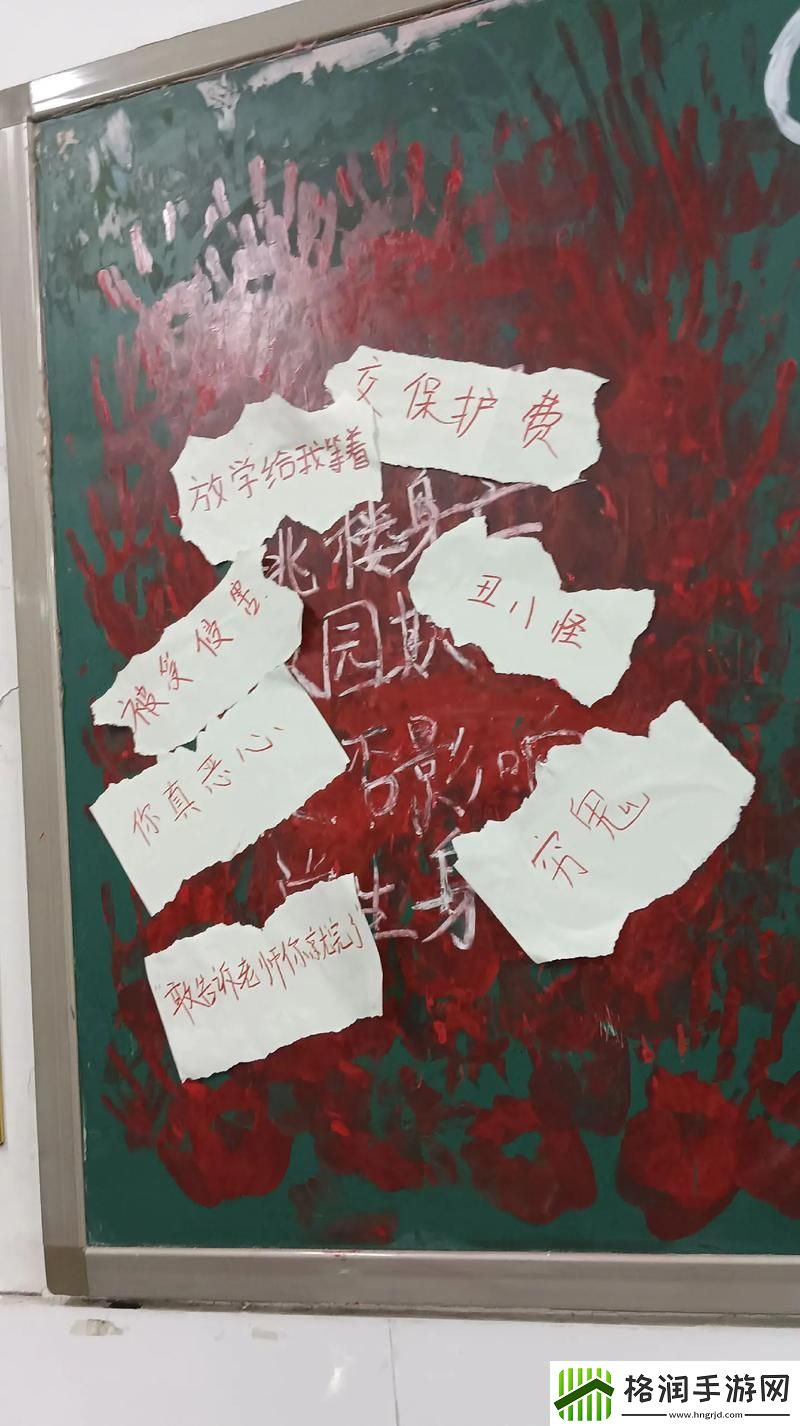 交保护费
放学给我等着
跳楼身亡
被受侵害
丑八怪
园欺
你真恶心
否影响
穷鬼
生身
敢告诉老师你就完了
格润手游网
www.hngrjd.com